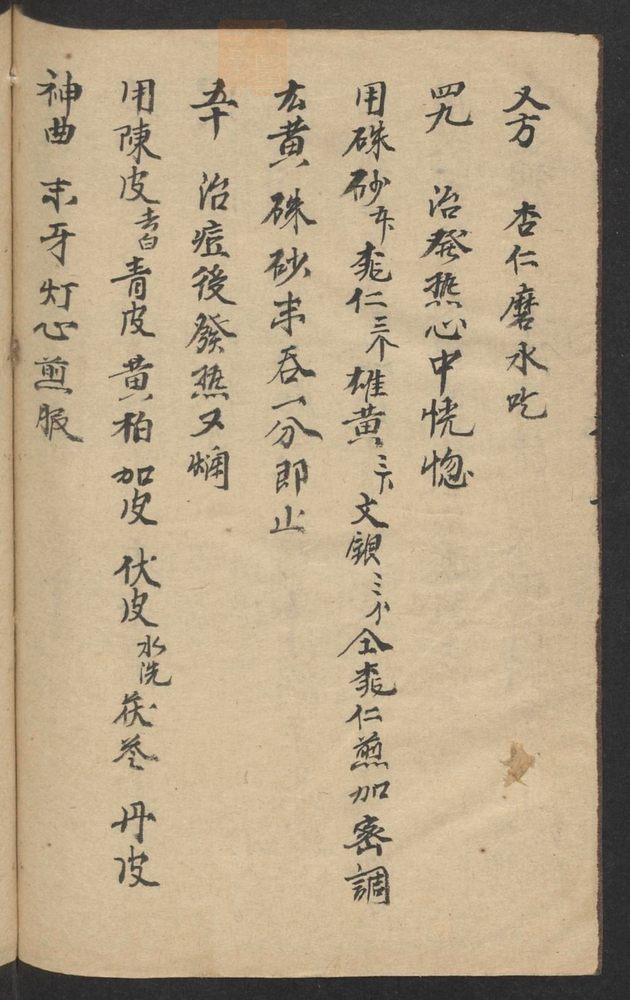 又方　杏仁磨水吃
四九　治發热心中恍惚
用硃砂　桃仁三个雄黄三下文銀三个仝桃仁煎加密調
去黄硃砂末吞一分即止
五十　治痘後發热又㶶
用陳皮去白青皮黄柏加皮伏皮水洗茯苓丹皮
神曲末牙灯心煎服